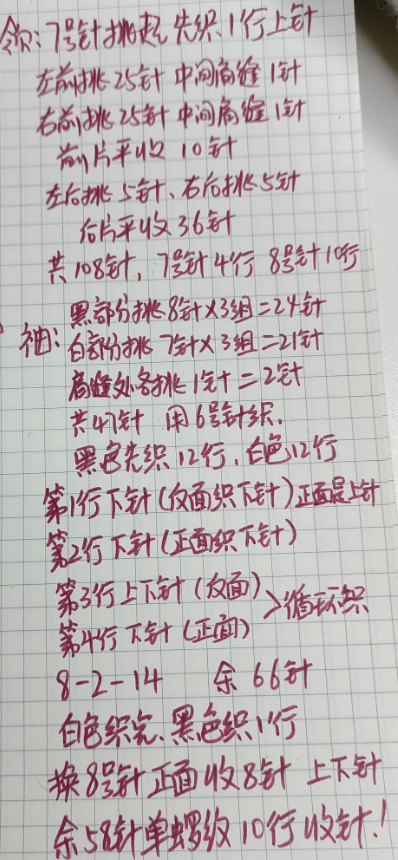 领:7号针挑起 先织1行上针
左前挑25针 中间肩缝1针
右前挑25针 中间肩缝1针
前片平收10针
左后挑5针、右后挑5针
后片平收36针
共108针, 7号针4行 8号针10行
黑部分挑8针×3组=24针
袖:白部分挑7针×3组=21针
肩缝处各挑1针=2针
共47针 用6号针织.
黑色先织12行.白色12行
第1行下针(反面织下针)正面是上针
第2行下针(正面织下针)
第3行上下针(反面)
>循环织
第4行下针(正面)
8-2-14 余66针
白色织完、黑色织1行
换8号针正面收8针 上下针
余58针单螺纹10行收针!